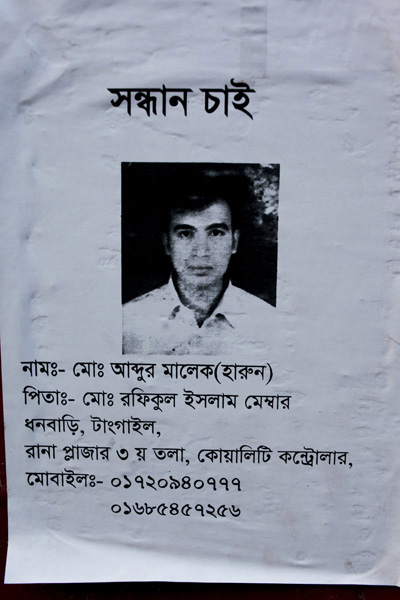 সন্ধান চাই
নামঃ- মোঃ আব্দুর মালেক(হারুন)
পিতাঃ- মোঃ রফিকুল ইসলাম মেম্বার
ধনবাড়ি, টাংগাইল,
রানা প্লাজার ৩ য় তলা, কোয়ালিটি কন্ট্রোলার,
মোবাইলঃ- ০১৭২০৯৪০৭৭৭
০১৬৮৫৪৫৭২৫৬